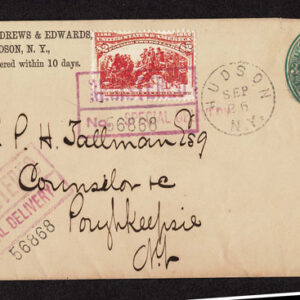 DREWS & EDWARDS,
DSON, N. Y.,
ered within 10 days.
$2
HUDSON
SEP
26
N.Y.
No. 56868 SPECIAL
P. H. Tallman Esq
Counselor &c
Poughkeepsie
NY
AL DELIVERY
56868